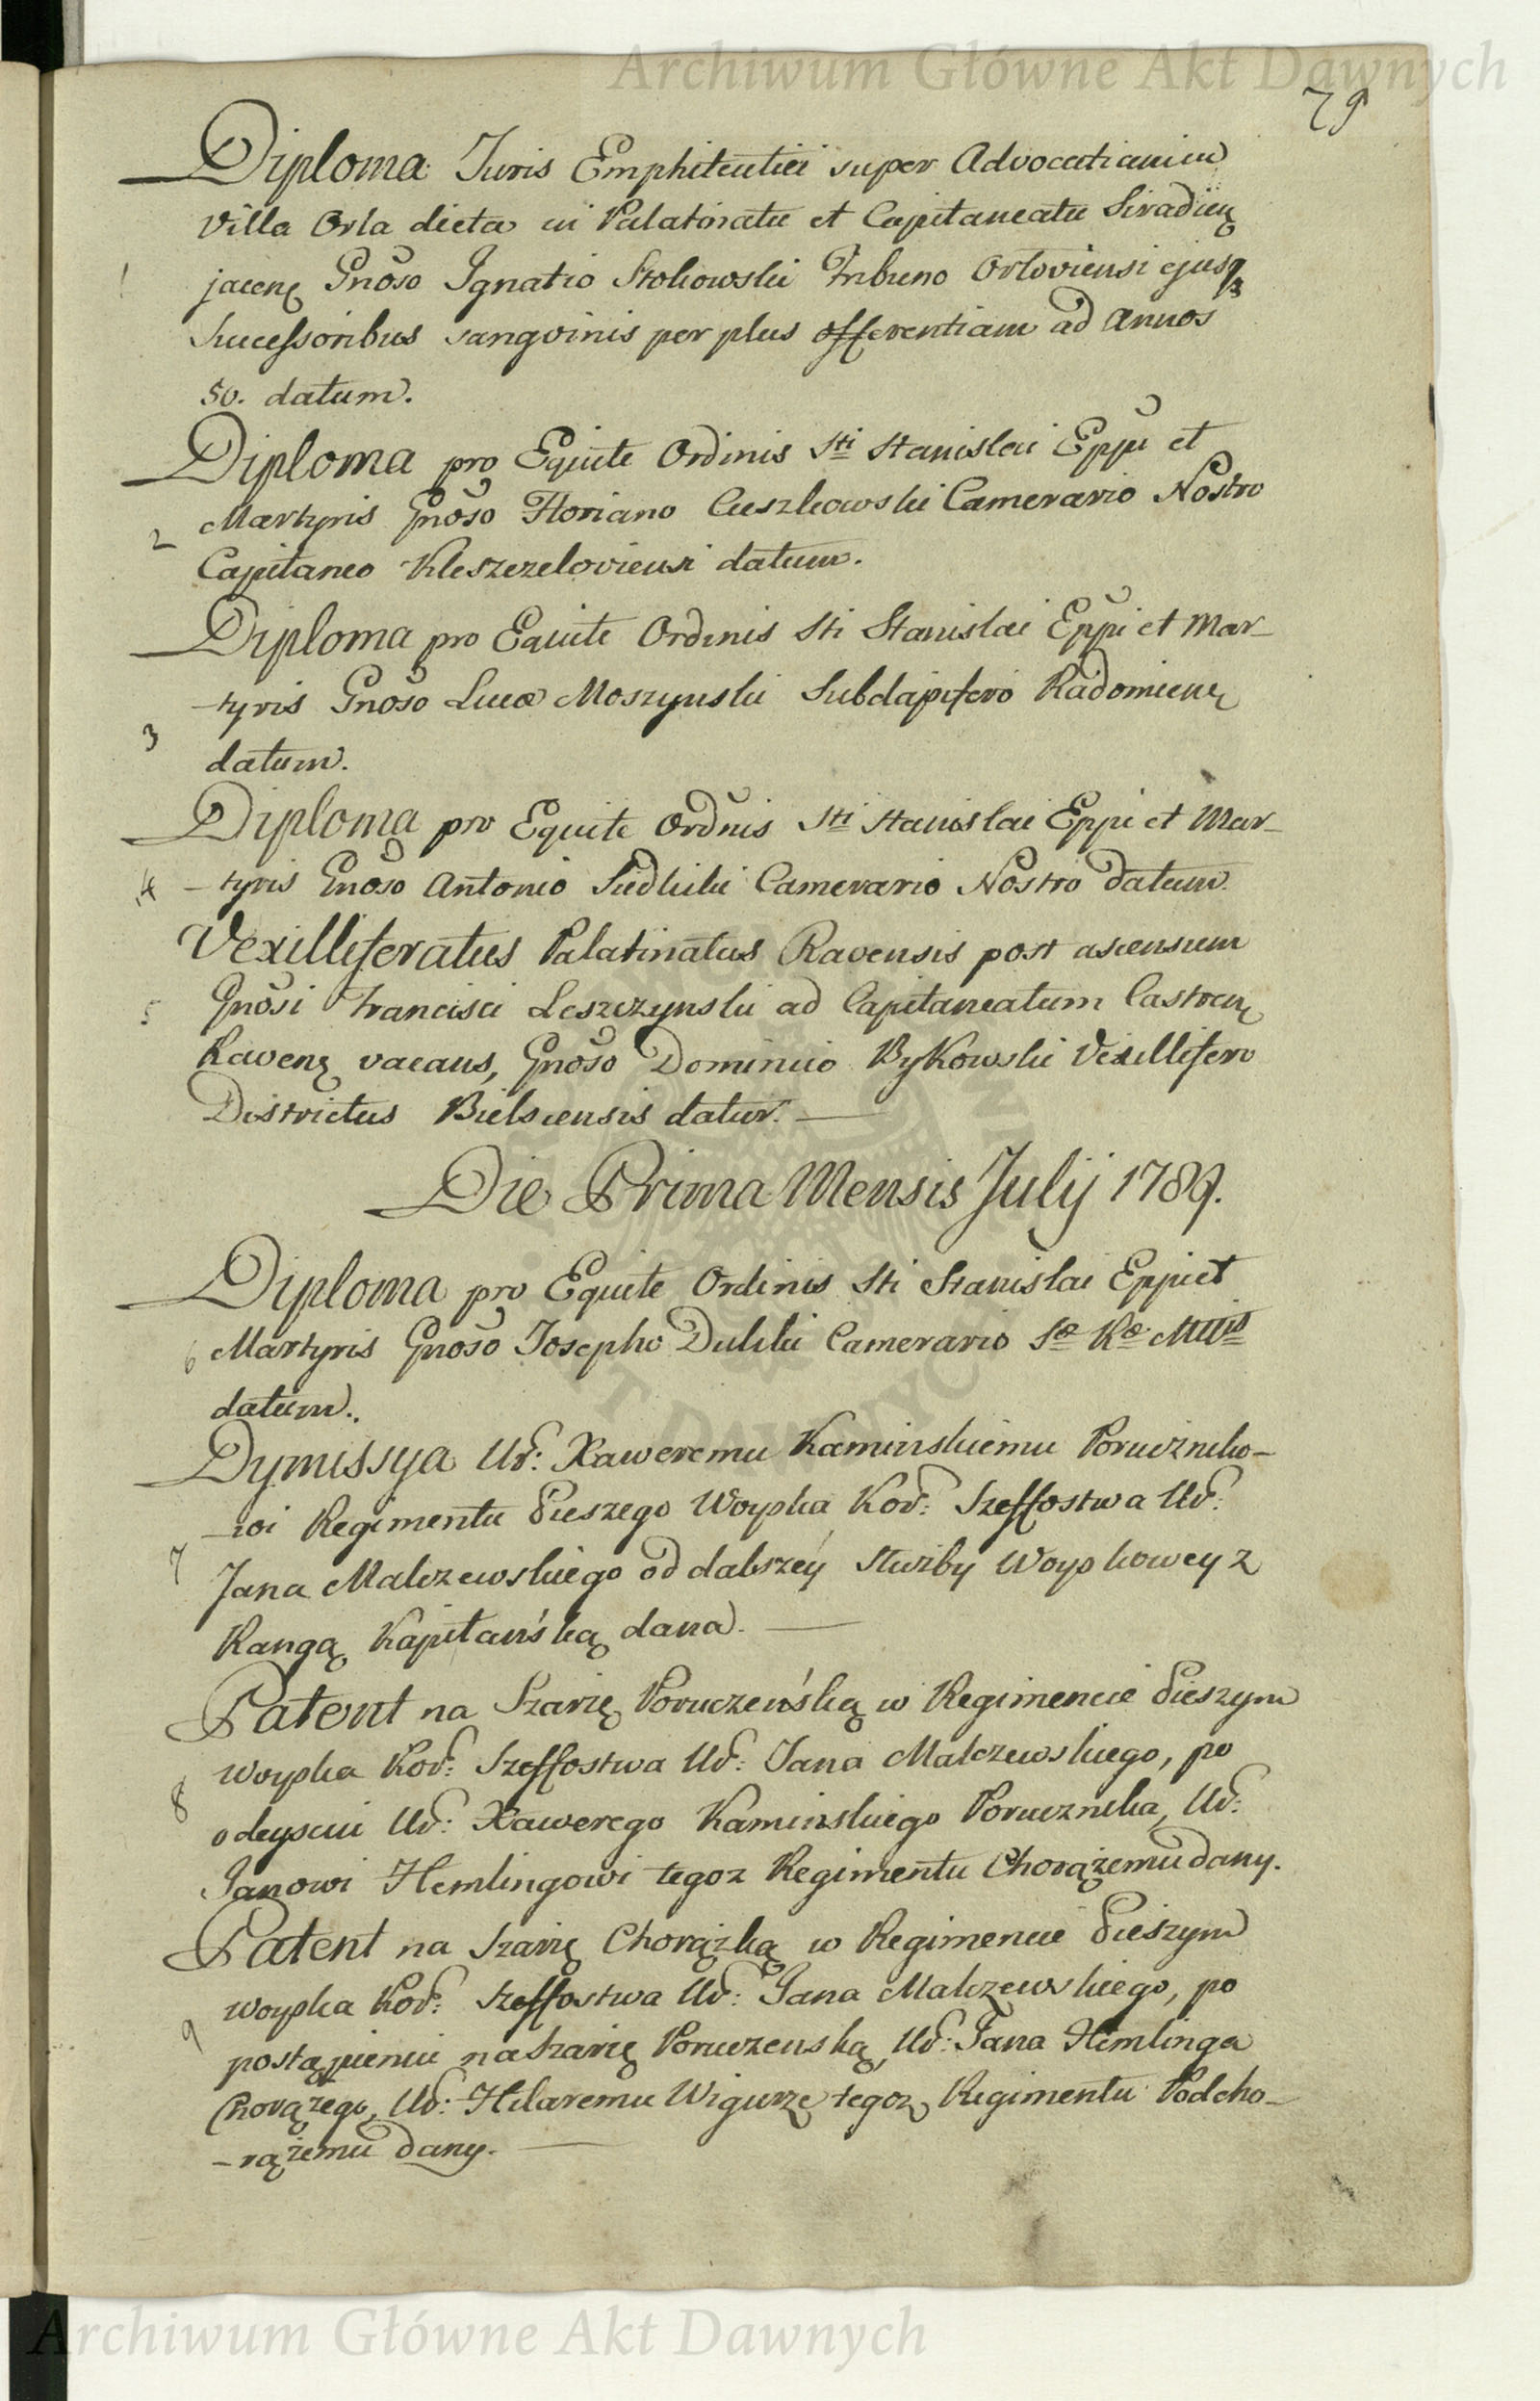 Archiwum Główne Akt Dawnych
79
Diploma Juris Emphiteutici super Advocatiam in
Villa Orla dicta in Palatinatu et Capitaneatu Siradien
1 jacen Gnoso Ignatio Stokowski Tribuno Orloviensi ejusq
Successoribus sangvinis per plus offerentiam ad Annos
50. datum.
Diploma pro Equite Ordinis Sti Stanislai Eppi et
2 Martyris Gnoso Floriano Cieszkowski Camerario Nostro
Capitaneo Kleszczeloviensi datum.
Diploma pro Equite Ordinis Sti Stanislai Eppi et Mar-
-tyris Gnoso Lucæ Moszynski Subdapifero Radomien
3 datum.
Diploma pro Equite Ordnis Sti Stanislai Eppi et Mar-
4 -tyris Gnoso Antonio Siedlicki Camerario Nostro datum
Vexilliferatus Palatinatus Ravensis post ascensum
5 Gnosi Francisci Leszczynski ad Capitaneatum Castren
Raven vacans, Gnoso Dominico Bykowski Vexillifero
Districtus Bielscensis datur.
Die Prima Mensis Julij 1789.
Diploma pro Equite Ordinis Sti Stanislai Eppi et
6 Martyris Gnoso Josepho Dulski Camerario Sæ Ræ Mttis
datum.
Dymissya Ur: Xaweremu Kaminskiemu Poruczniko-
-wi Regimentu Pieszego Woyska Kor: Szeffostwa Ur:
7 Jana Malczewskiego od dalszéy Służby Woyskowey z
Rangą Kapitańską dana.
Patent na Szarżę Poruczeńską w Regimencie Pieszym
Woyska Kor: Szeffostwa Ur: Jana Malczewskiego, po
8 odeysciu Ur: Xawerego Kaminskiego Porucznika, Ur:
Janowi Hemlingowi tegoz Regimentu Chorążemu dany.
Patent na Szarżę Chorążką w Regimencie Pieszym
Woyska Kor: Szeffostwa Ur: Jana Malczewskiego, po
9 postąpieniu na Szarżę Poruczenską, Ur: Jana Hemlinga
Chorążego, Ur: Hilaremu Wigurze tegoz Regimentu Podcho-
-rążemu dany.
Archiwum Główne Akt Dawnych